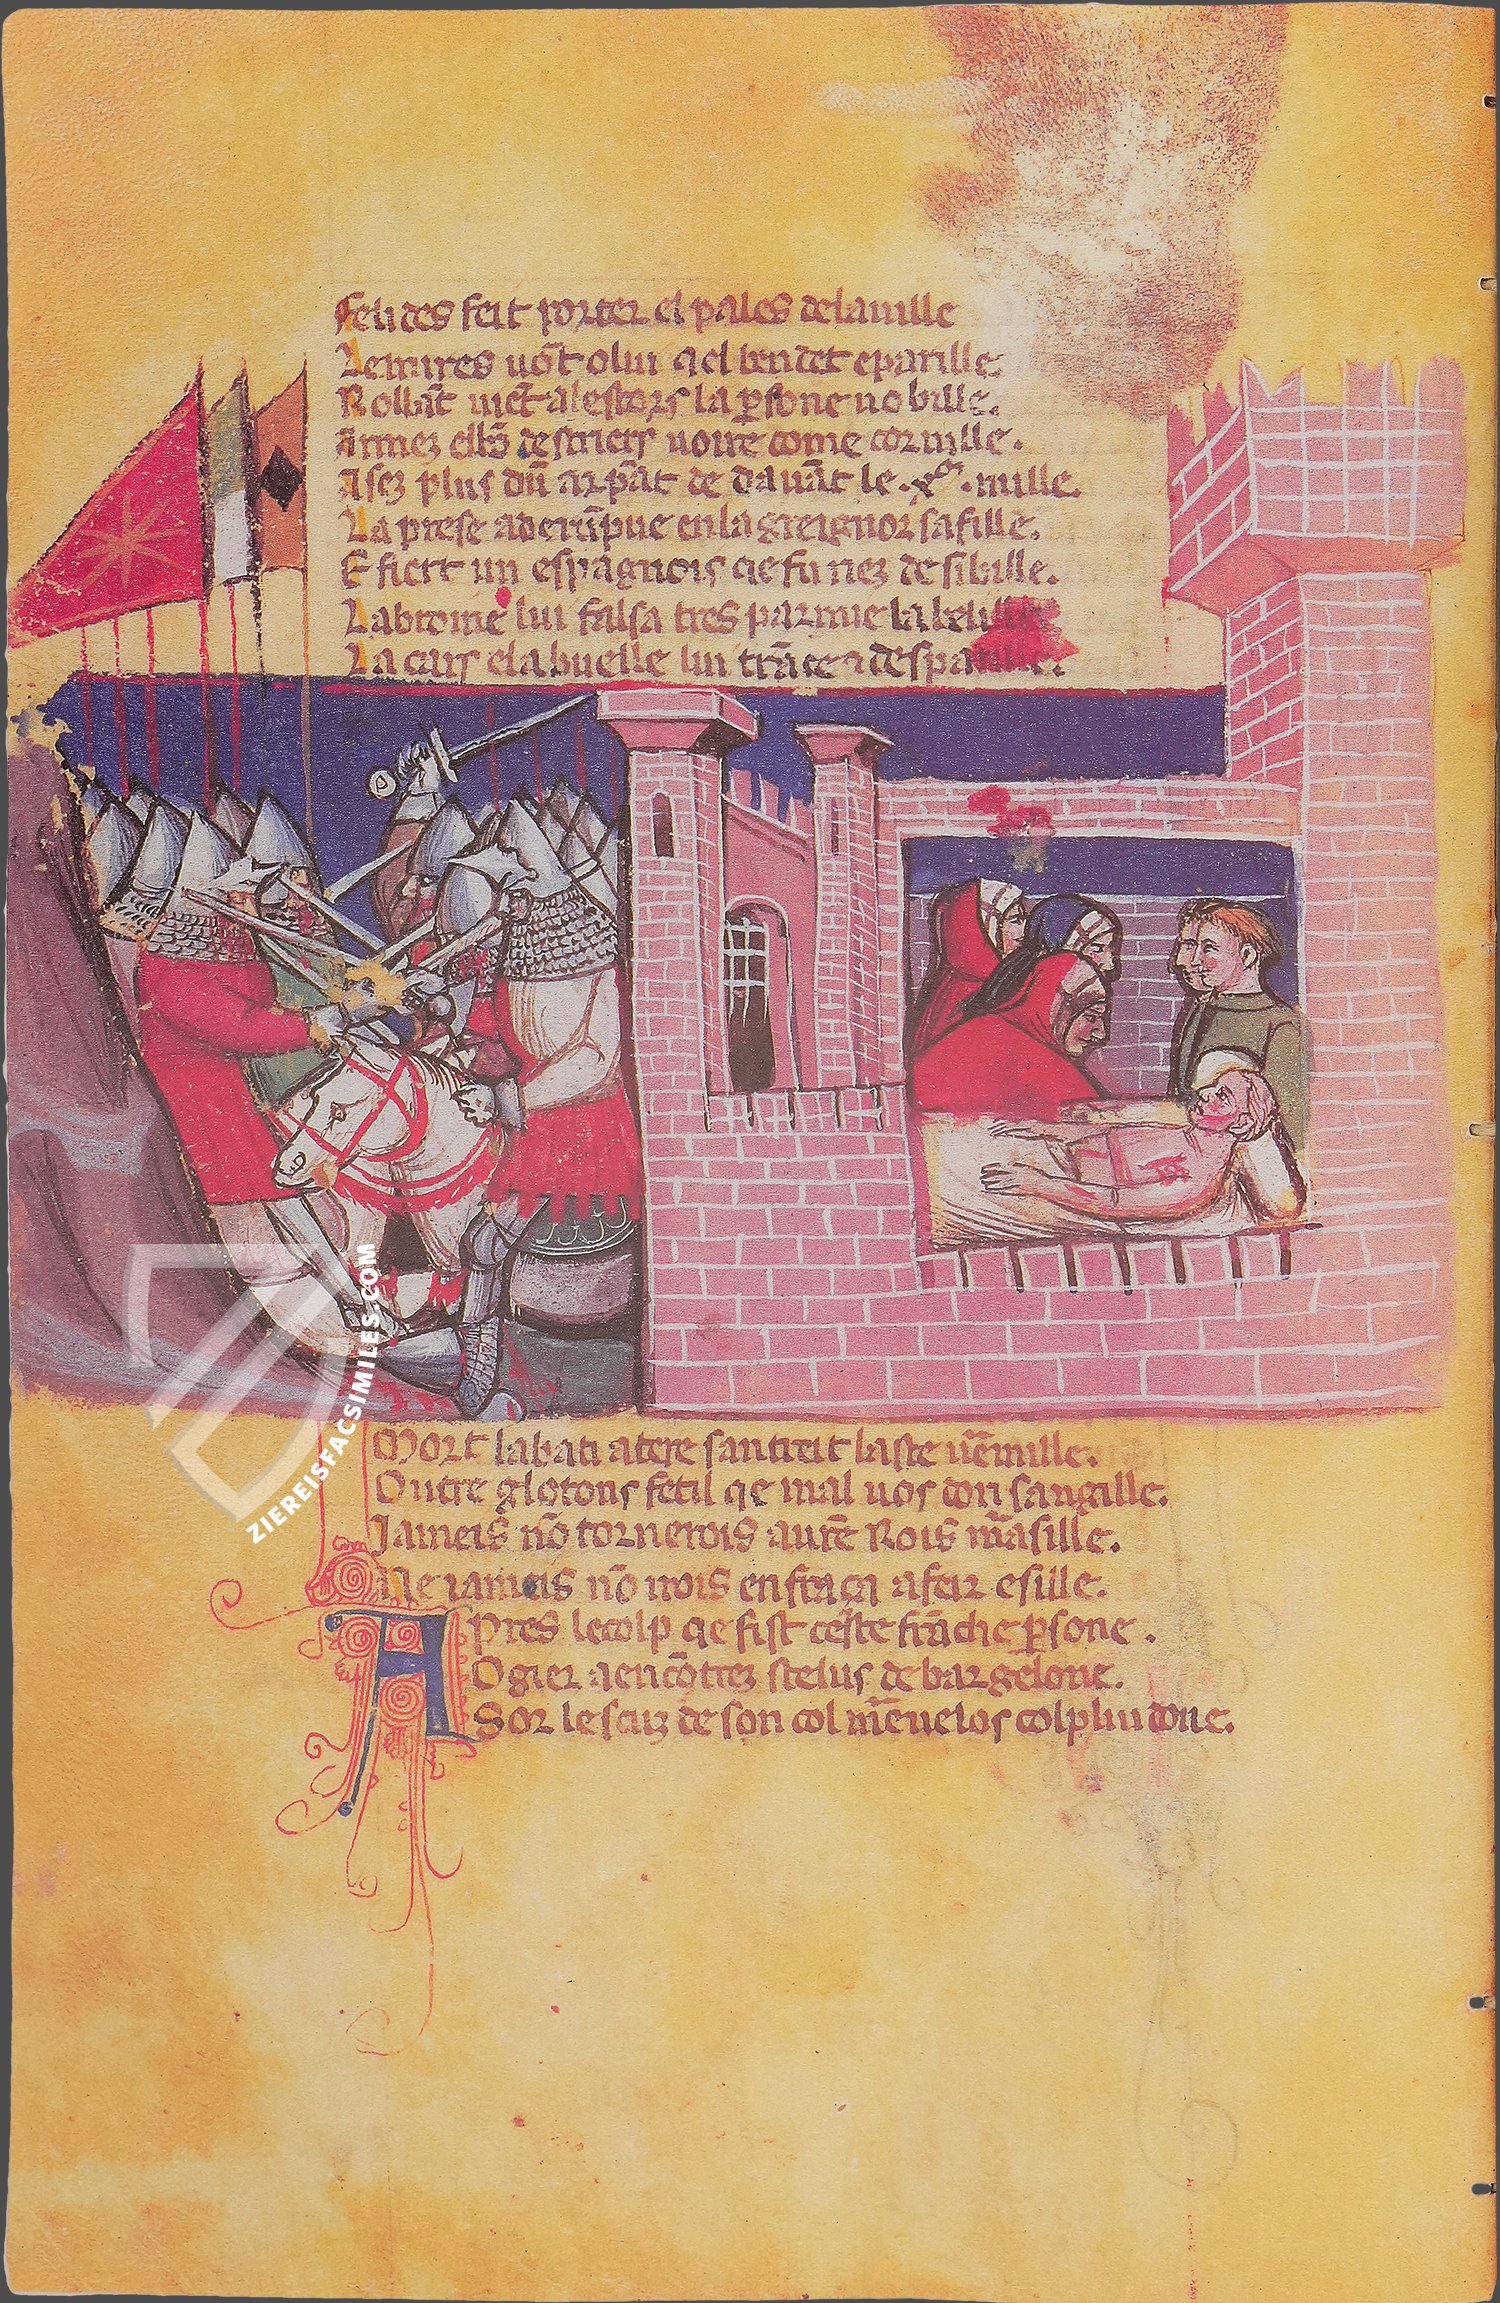 Feli des feit porter el pales de la uille
Le mires uōt o lui qel bendet e parille.
Rollāt uiet a lestors la ꝑsone nobille.
Armez el bȳ destriers noire come cornille.
Asez plus dū arpāt de dauāt le .xx. mille.
La prese a derūpue en la greignor safille.
E fiert un espagnois qe fu nez de sibille.
La broine lui falsa tres parmie la
La cars e la buelle lui trāce
Mort labati a tere
Outre glotons fetil qe mal uos don sangille.
Jameis nō tornerois au rē Rois mᵃsille.
Ne iameis nō irois en frāça a feir esille.
Apres le colp qe fist ceste frāche ꝑsone.
Ogier a encōtrez
Sor lescuz de son col colp lui done.
ZIEREISFACSIMILES.COM